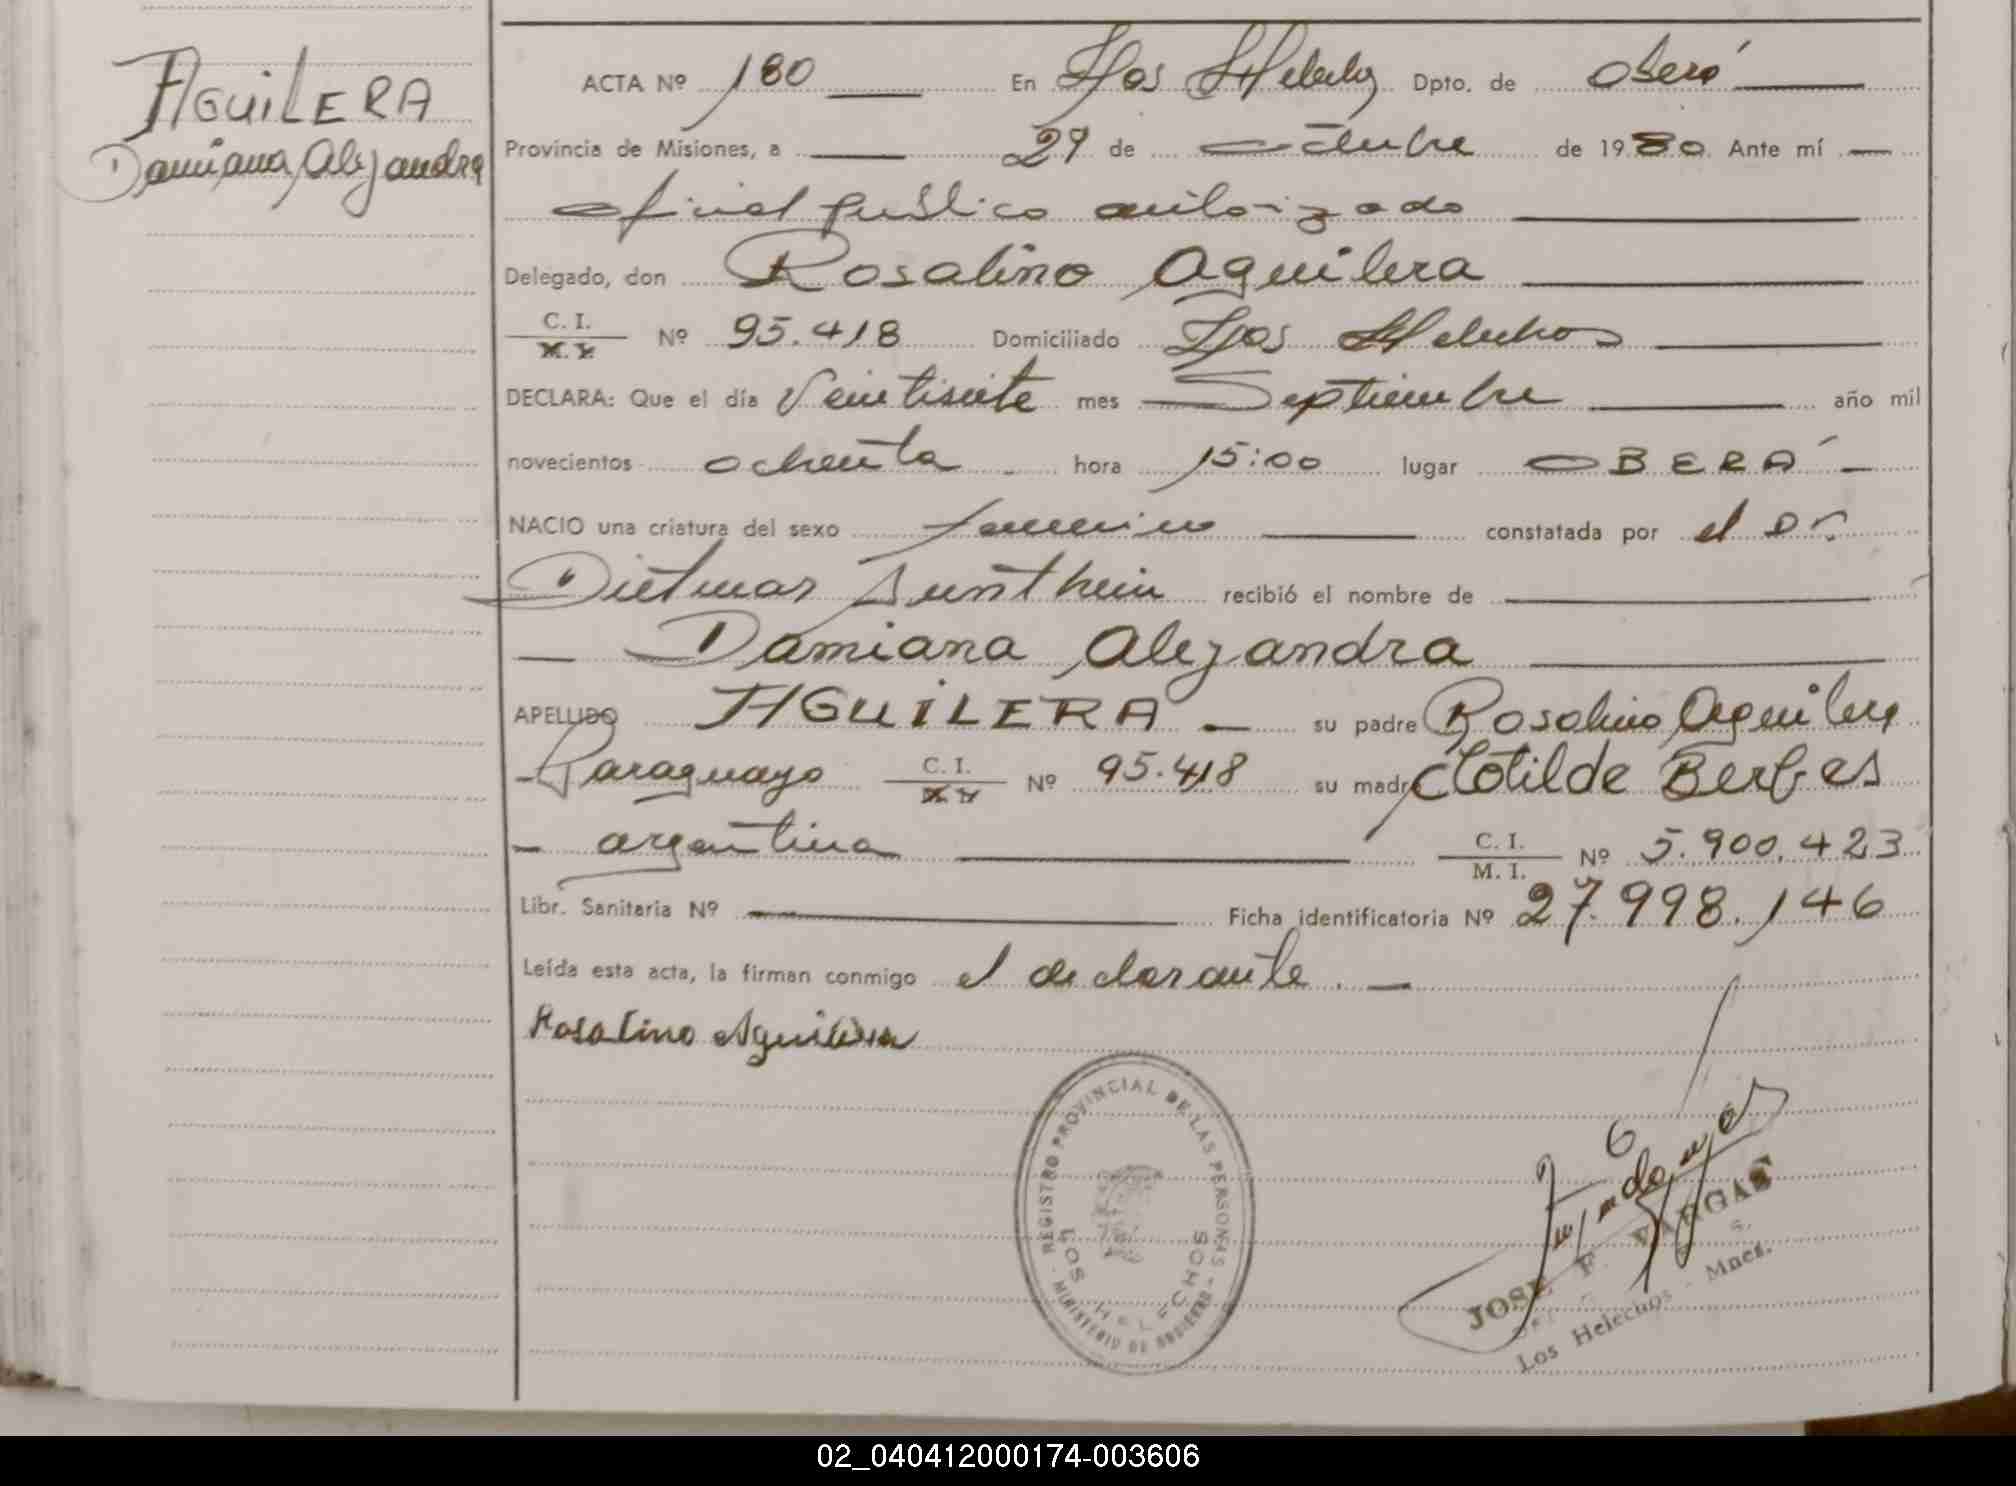 AGUILERA
Damiana Alejandra
ACTA Nº 180 En Los Helechos Dpto. de Oberá
Provincia de Misiones, a 29 de octubre de 1980 Ante mí
oficial publico autorizado
Delegado, don Rosalino Aguilera
C. I. Nº 95.418 Domiciliado Los Helechos
DECLARA: Que el día Veintisiete mes Septiembre año mil
novecientos ochenta hora 15:00 lugar OBERÁ
NACIO una criatura del sexo femenino constatada por el Dr.
Dietmar recibió el nombre de
Damiana Alejandra
APELLIDO AGUILERA su padre Rosalino Aguilera
Paraguayo C. I. Nº 95.418 su madre Clotilde Berges
argentina C. I. M. I. Nº 5.900.423
Libr. Sanitaria Nº Ficha identificatoria Nº 27.998.146
Leída esta acta, la firman conmigo el declarante.
Rosalino Aguilera
REGISTRO PROVINCIAL DE LAS PERSONAS - MINISTERIO DE GOBIERNO -
LOS HELECHOS
JOSE F. VARGAS
Los Helechos - Mnes.
02_040412000174-003606